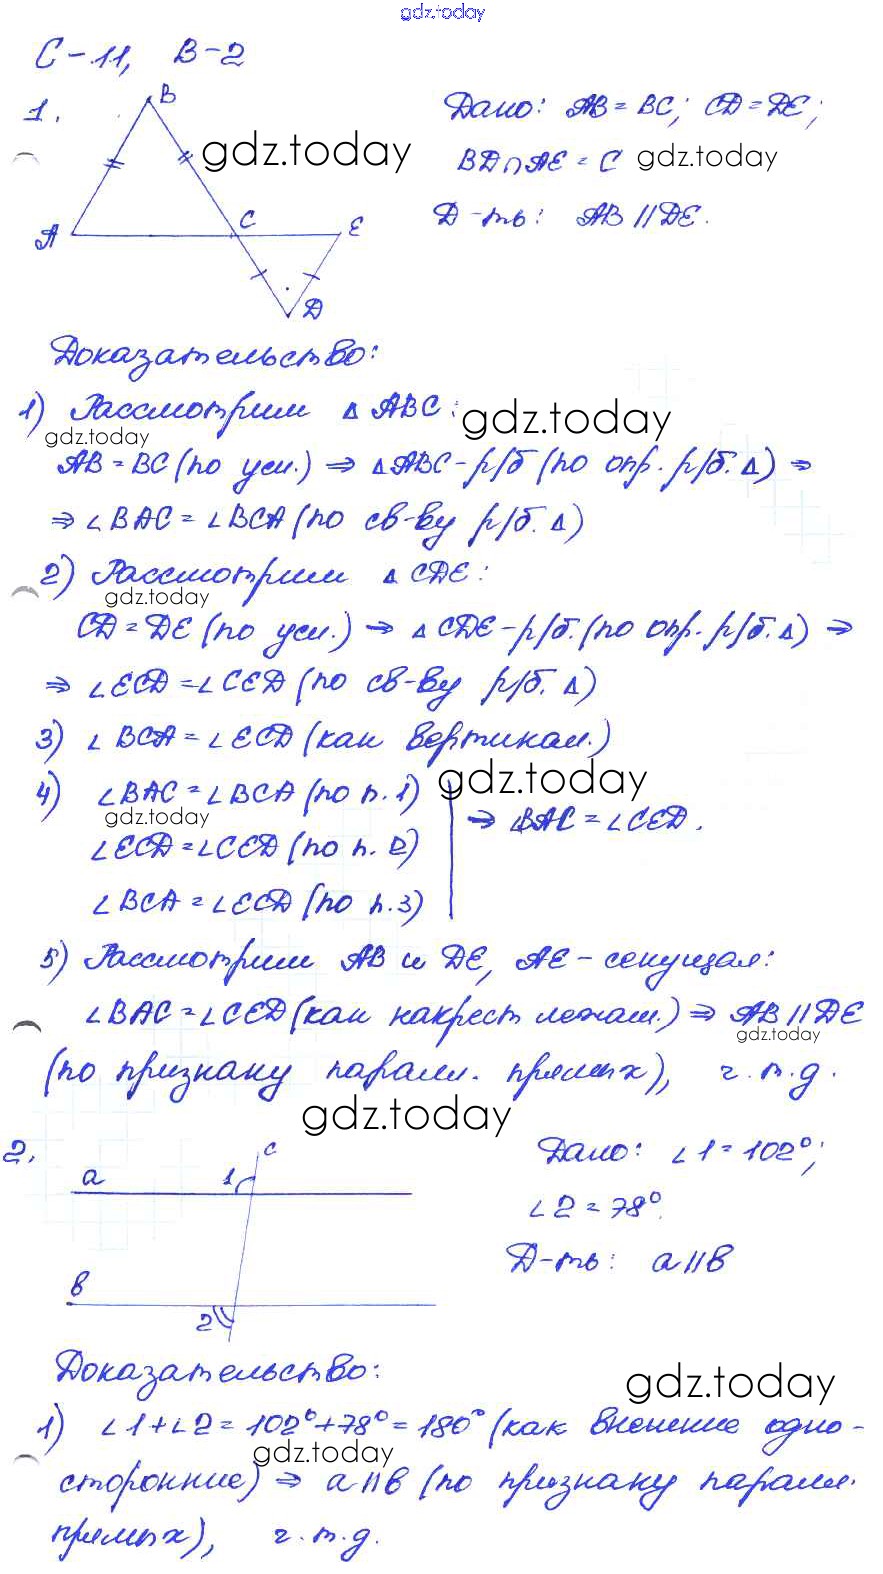 gdz.today
С-11, В-2
1.
B
A
C
E
D
Дано: AB = BC; CD = DE;
gdz.today
BD∩AE = C gdz.today
Д-ть: AB || DE.
Доказательство:
1) Рассмотрим △ ABC:
gdz.today
gdz.today
AB = BC (по усл.) ⇒ △ABC - р/б (по опр. р/б. △) ⇒
⇒ ∠BAC = ∠BCA (по св-ву р/б. △)
2) Рассмотрим △ CDE:
gdz.today
CD = DE (по усл.) ⇒ △ CDE - р/б. (по опр. р/б. △) ⇒
⇒ ∠ECD = ∠CED (по св-ву р/б. △)
3) ∠BCA = ∠ECD (как вертикал.)
gdz.today
4) ∠BAC = ∠BCA (по п. 1)
gdz.today
⇒ ∠BAC = ∠CED.
∠ECD = ∠CED (по п. 2)
∠BCA = ∠ECD (по п. 3)
5) Рассмотрим AB и DE, AE - секущая:
∠BAC = ∠CED (как накрест лежащ.) ⇒ AB || DE
gdz.today
(по признаку паралл. прямых), ч.т.д.
gdz.today
2.
a
1
c
b
2
Дано: ∠1 = 102°;
∠2 = 78°.
Д-ть: a || b
Доказательство:
gdz.today
1) ∠1 + ∠2 = 102° + 78° = 180° (как внешние одно-
gdz.today
сторонние) ⇒ a || b (по признаку паралл.
прямых), ч.т.д.